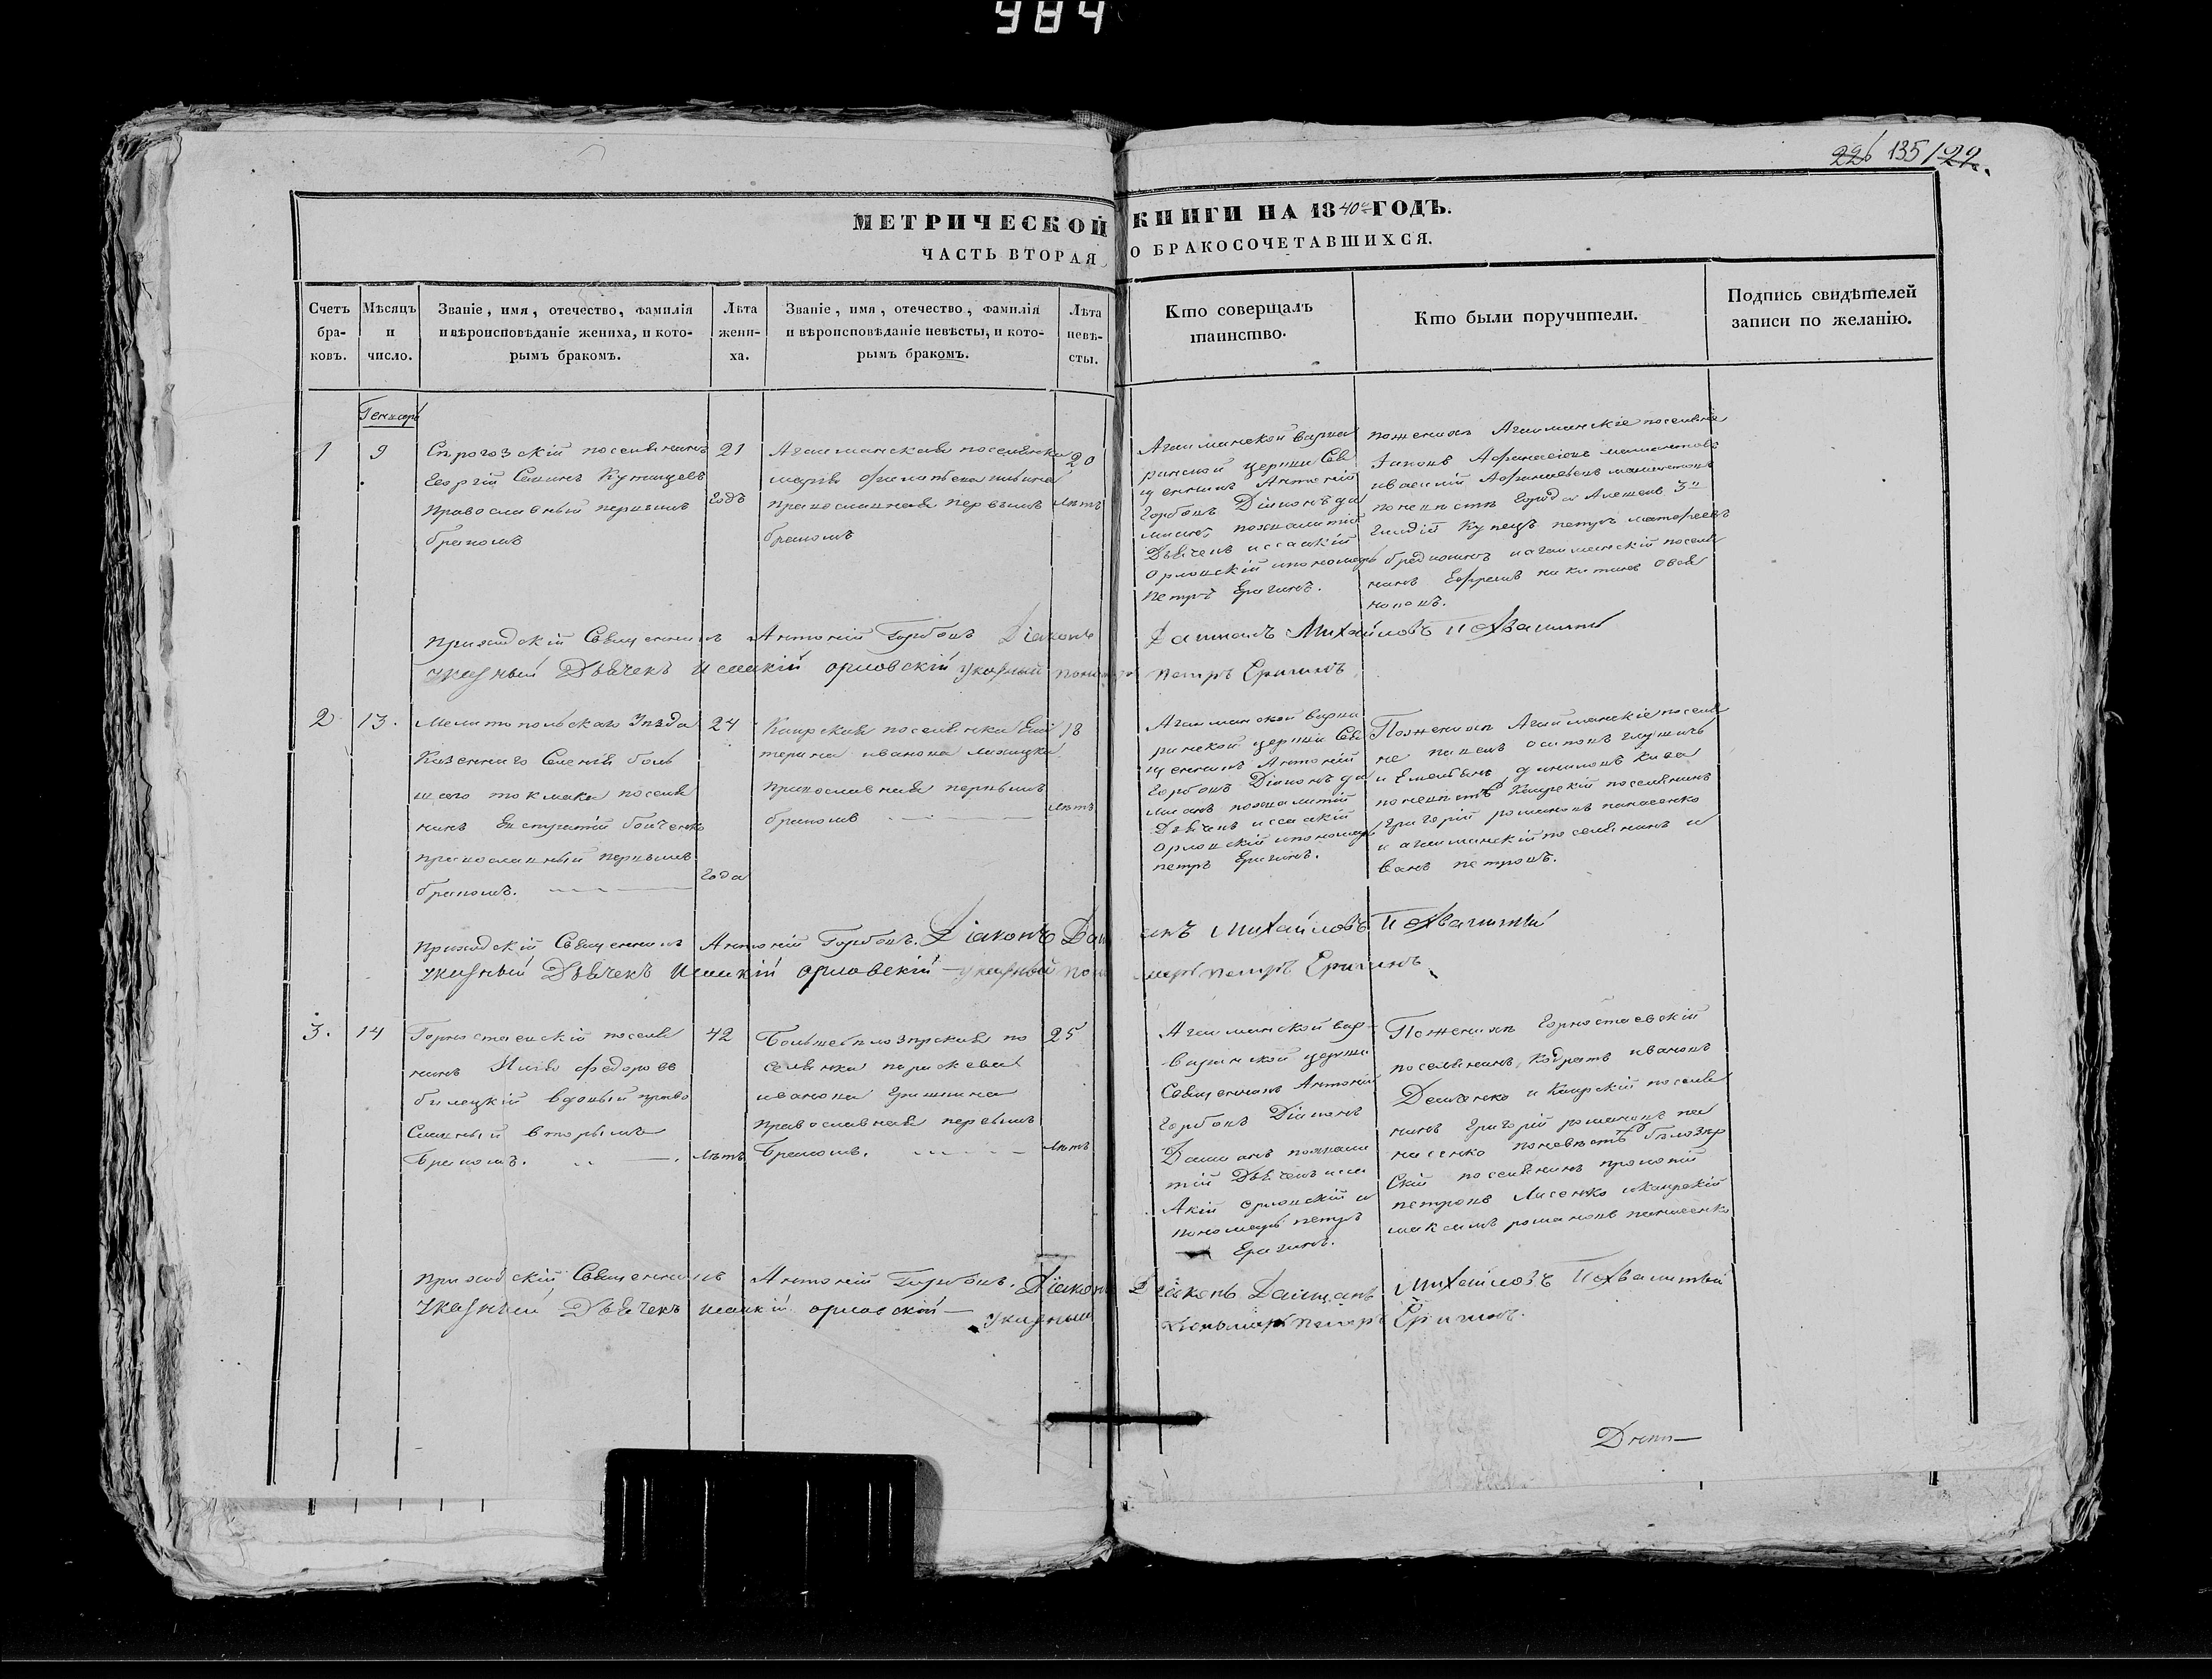 984
226 135/22.
МЕТРИЧЕСКОЙ КНИГИ НА 1840й ГОДЪ.
ЧАСТЬ ВТОРАЯ О БРАКОСОЧЕТАВШИХСЯ.
Счетъ бра-ковъ.
Мѣсяцъ и число.
Званіе, имя, отечество, фамилія
и вѣроисповѣданіе жениха, и кото-
рымъ бракомъ.
Лѣта жени-ха.
Званіе, имя, отечество, фамилія
и вѣроисповѣданіе невѣсты, и кото-
рымъ бракомъ.
Лѣта невѣ-сты.
Кто совершалъ
таинство.
Кто были поручители.
Подпись свидѣтелей
записи по желанію.
Генварь
1
9
поселянинъ
Георгій Савинъ
Православный первымъ
бракомъ
21
годъ
Агайманская поселянка
марія
православная первымъ
бракомъ
20
лѣтъ
Агайманской варва
ринской церкви Свя
щенникъ Антоній
Горбовъ Діаконъ да
міанъ похвалитій
Дьячекъ исаакій
орловскій и пономарь
петръ Еригинъ.
по женихѣ Агайманскіе поселяне
по невѣстѣ города Алешекъ 3й
гилдій Купецъ петръ матфеевъ
и агайманскій поселя
нинъ Ефремъ никитинъ
Приходскій Священникъ Антоній Горбовъ Діаконъ Даміанъ Михайловъ Похвалитый
указный Дьячекъ Исаакій орловскій указный пономарь петръ Еригинъ
2
13.
Мелитопольскаго Уѣзда
Казеннаго Селенія боль
шаго токмака поселя
нинъ Евстратій бойченко
православный первымъ
бракомъ.
24
года
Каирская поселянка Ека
терина иванова
православная первымъ
бракомъ
18
лѣтъ
Агайманской варва
ринской церкви Свя
щенникъ Антоній
Горбовъ Діаконъ да
міанъ похвалитій
Дьячекъ исаакій
орловскій и пономарь
петръ Еригинъ.
По женихѣ Агайманскіе поселя
не павелъ осиповъ
по невѣстѣ Каирскій поселянинъ
григорій романовъ панасенко
и агайманскій поселянинъ и
ванъ петровъ.
Приходскій Священникъ Антоній Горбовъ. Діаконъ Даміанъ Михайловъ Похвалитый
указный Дьячекъ Исаакій орловскій указный пономарь петръ Еригинъ
3.
14
Горностаевскій поселя
нинъ федоровъ
билецкій вдовый право
славный вторымъ
бракомъ.
42
лѣтъ
по
селянка параскева
иванова
православная первымъ
бракомъ.
25
лѣтъ
Агайманской вар
варинской церкви
Священникъ Антоній
Горбовъ Діаконъ
Даміанъ похвали
тій Дьячекъ иса
Акій орловскій и
пономарь петръ
Еригинъ.
По женихѣ Горностаевскій
поселянинъ Кодратъ ивановъ
Демченко и Каирскій поселя
нинъ григорій романовъ па
насенко по невѣстѣ бѣлозер
скій поселянинъ прокопій
петровъ Лисенко и каирскій
максимъ романовъ панасенко
Приходскій Священникъ Антоній Горбовъ. Діаконъ Діаконъ Даміанъ Михайловъ Похвалитый
Указный Дьячекъ Исаакій орловскій указный пономарь петръ Еригинъ.